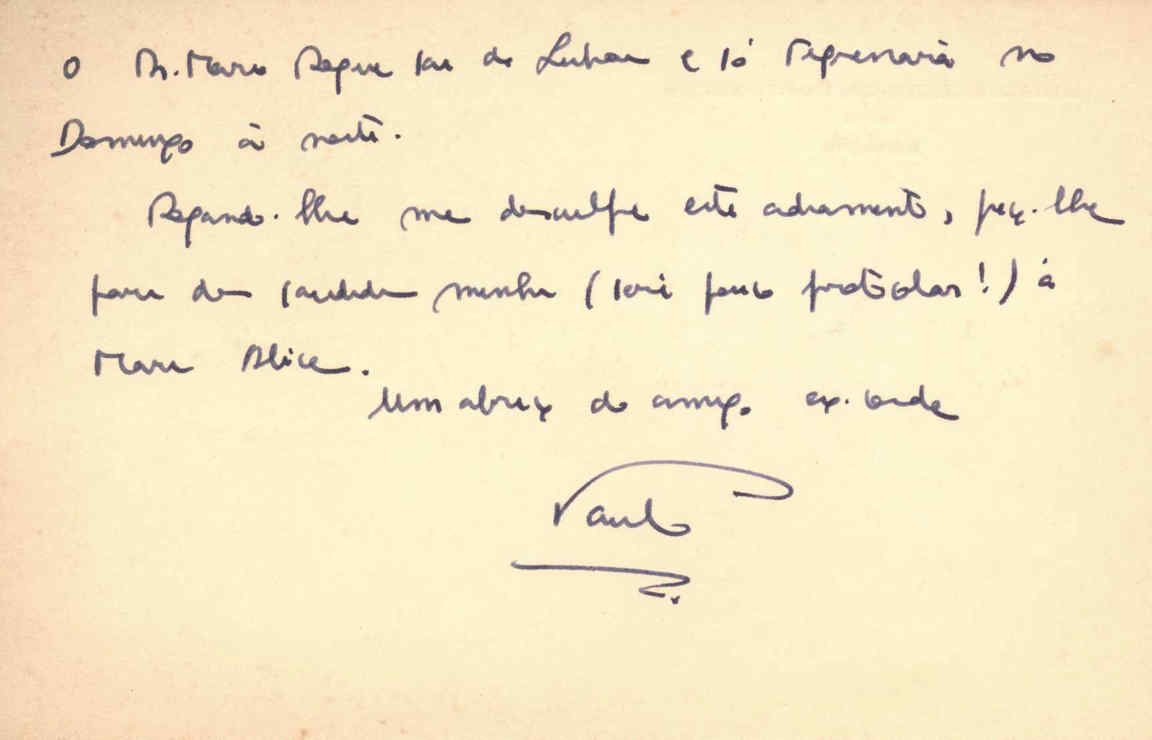 o Dr. Mario Roque sai de Lisboa e só regressará no
Domingo à noite.
Rogando-lhe me desculpe este adiamento, peço-lhe
para dar saudades minhas (serei pouco protocolar!) à
Maria Alice.
Um abraço do amigo
Paulo